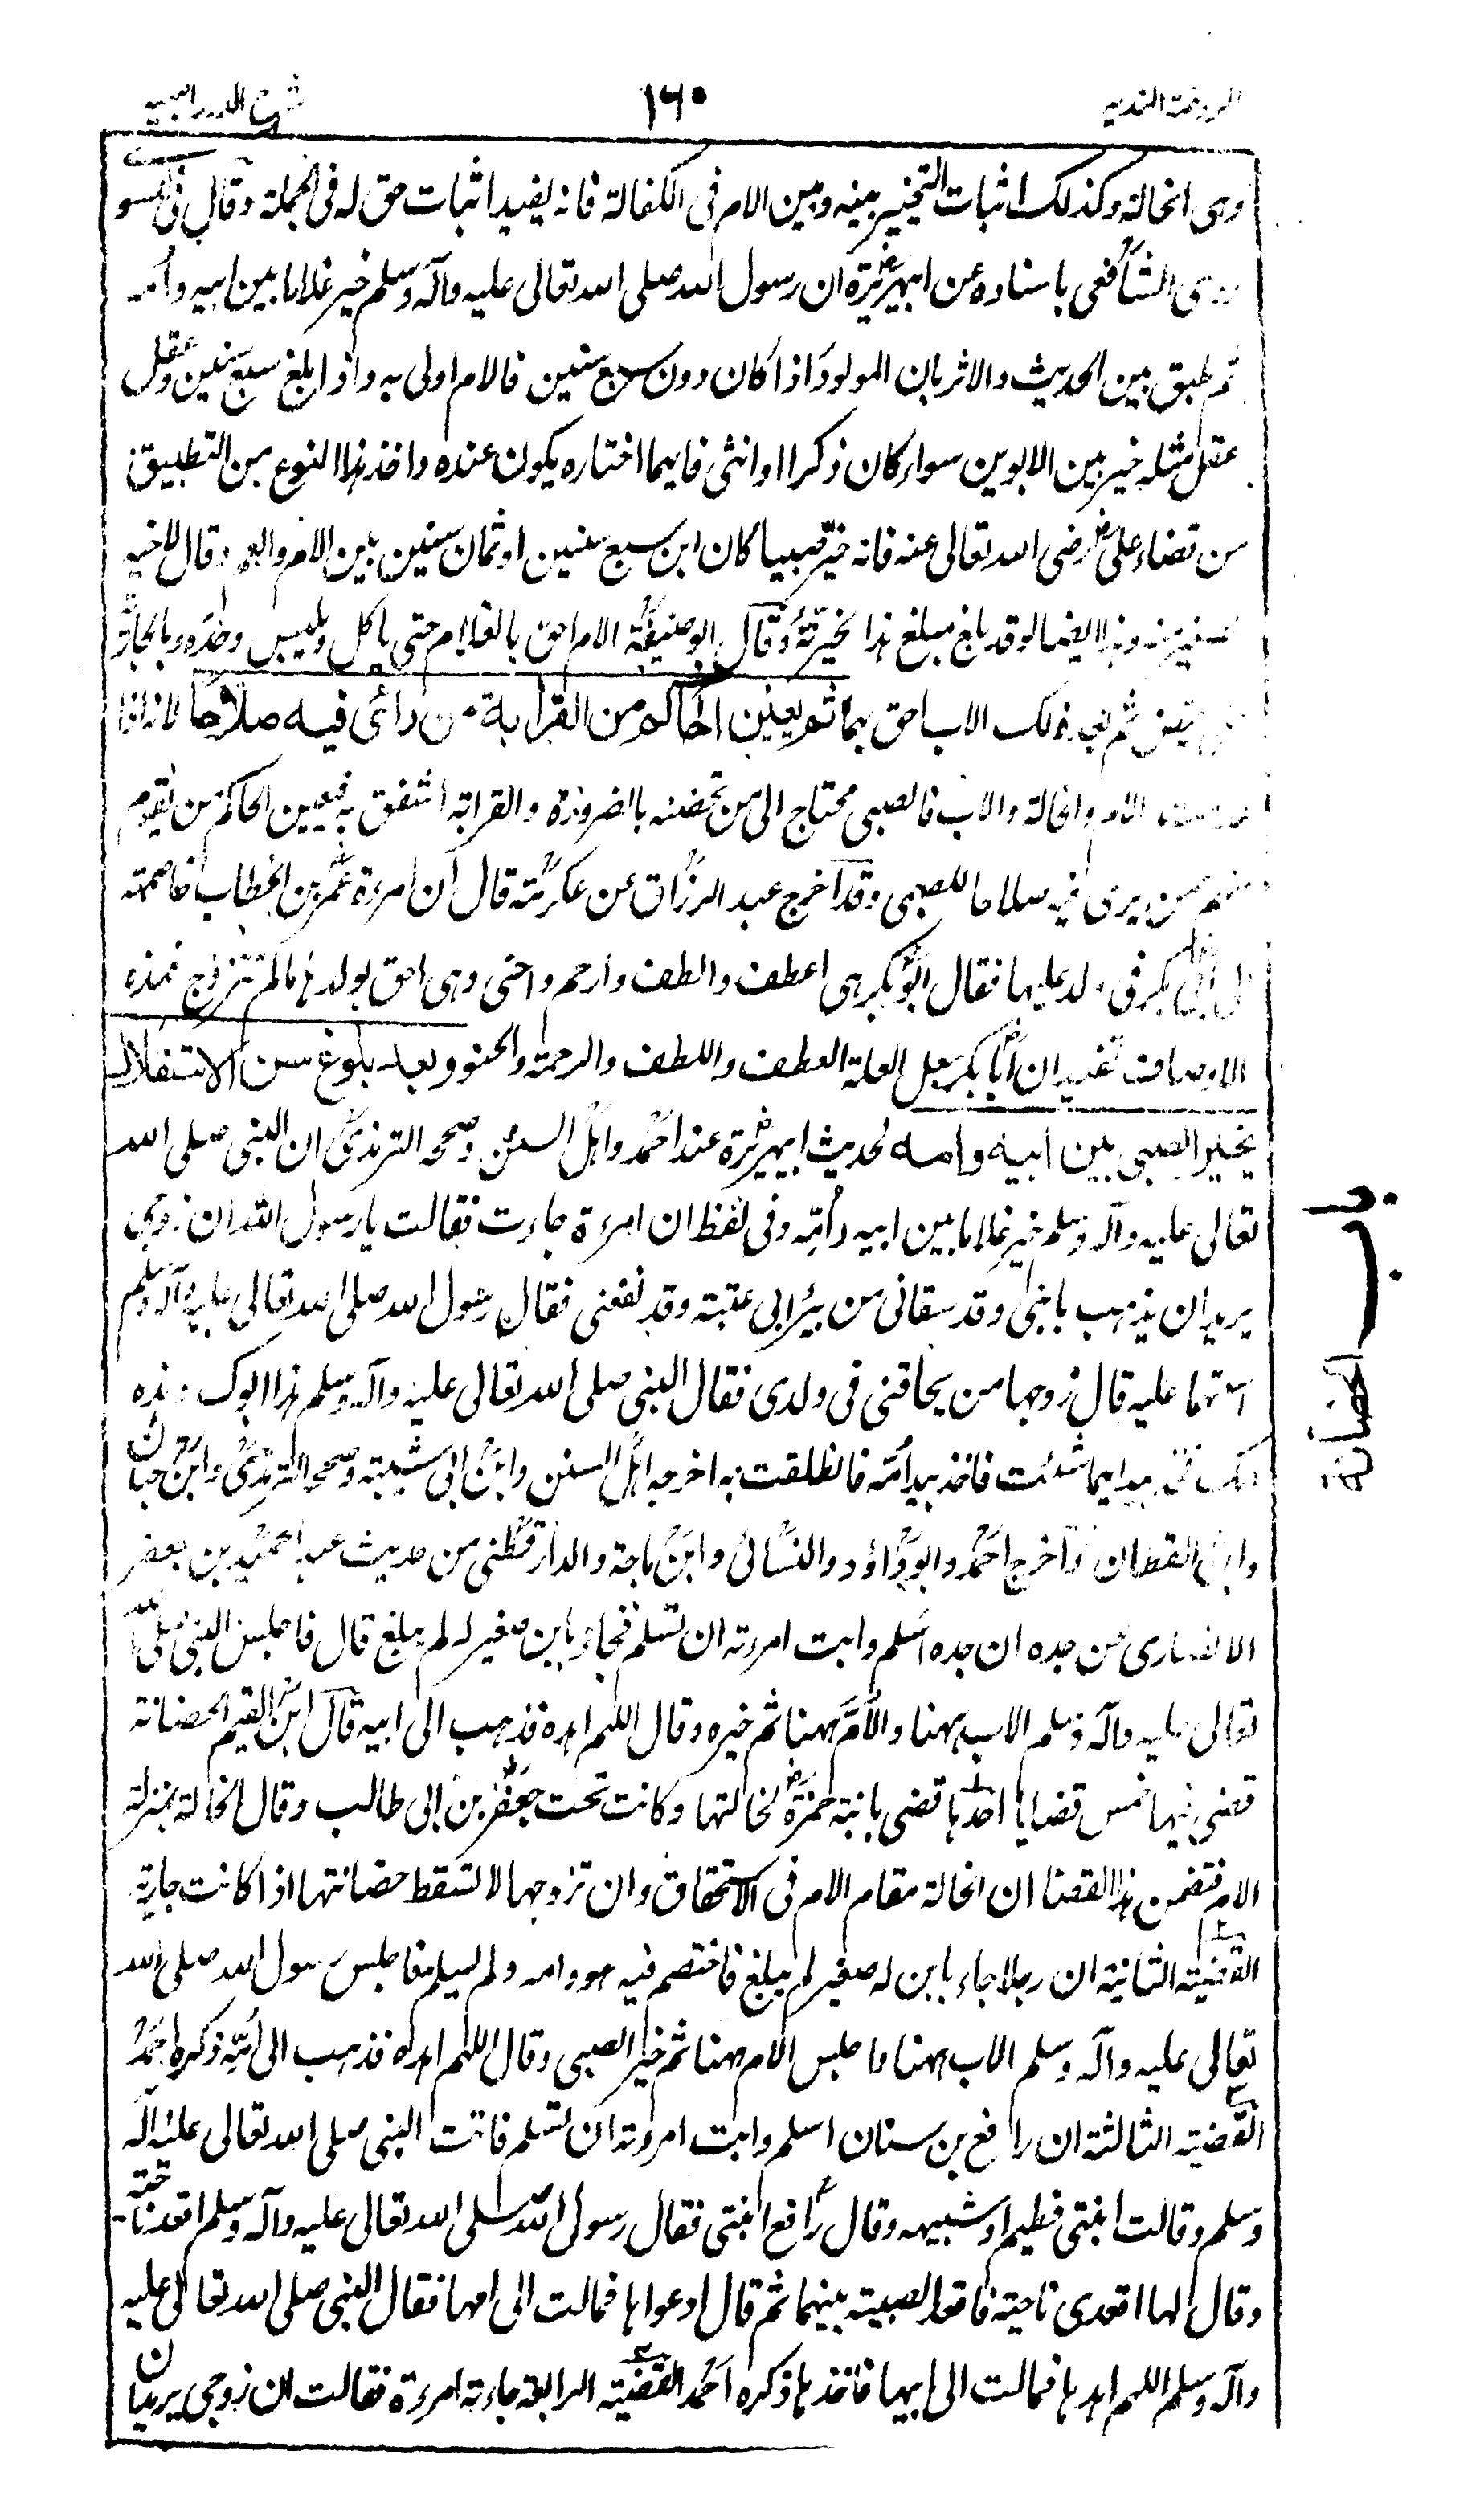 الروضة الندية
١٦٠
شرح الدرر البهية
وهى الخالة وكذلك اثبات التخيير بينه وبين الام فى الكفالة فانه يفيد اثبات حق له فى الجملة وقال فى المسو
روى الشافعى باسناده عن ابيهريرة ان رسول الله صلى الله تعالى عليه وآله وسلم خير غلاما بين ابيه وامه
ثم طبق بين الحديث والاثر بان المولود اذا كان دون سبع سنين فالام اولى به واذا بلغ سبع سنين وعقل
عقل مثله خير بين الابوين سواء كان ذكرا او انثى فايهما اختاره يكون عنده واخذ هذا النوع من التطبيق
من قضاء على رضى الله تعالى عنه فانه خير صبيا كان ابن سبع سنين او ثمان سنين بين الام والعم وقال لاخيه
اصغر منه وهذا ايضا لو قد بلغ مبلغ هذا لخيرته وقال ابو حنيفة الام احق بالغلام حتى ياكل ويلبس وحده وبالجارية
حتى تحيض ثم بعد ذلك الاب احق بهما ثم يعين الحاكم من القرابة من رائى فيه صلاحا لانه اذا
عدمت الام والخالة والاب فالصبى محتاج الى من تحضنه بالضرورة والقرابة اشفق به فيعين الحاكم من يقوم
منهم ممن يرى فيه صلاحا للصبى وقد اخرج عبد الرزاق عن عكرمة قال ان امرءة عمر بن الخطاب خاصمته
الى ابى بكر فى ولد عليها فقال ابو بكر هى اعطف والطف وارحم واحنى وهى احق بولدها مالم تتزوج فهذه
الاوصاف تفيد ان ابا بكر جعل العلة العطف واللطف والرحمة والحنو وبعد بلوغ سن الاستقلال
يخير الصبى بين ابيه وامه لحديث ابيهريرة عند احمد واهل السنن وصححه الترمذى ان النبى صلى الله
تعالى عليه وآله وسلم خير غلاما بين ابيه وامه وفى لفظ ان امرءة جاءت فقالت يا رسول الله ان زوجى
يريد ان يذهب بابنى وقد سقانى من بئر ابى عتبة وقد نفعنى فقال رسول الله صلى الله تعالى عليه وآله وسلم
استهما عليه قال زوجها من يحاقنى فى ولدى فقال النبى صلى الله تعالى عليه وآله وسلم هذا ابوك وهذه
امك فخذ بيد ايهما شئت فاخذ بيد امه فانطلقت به اخرجه اهل السنن وابن ابى شيبة وصححه الترمذى وابن حبان
وابن القطان واخرج احمد وابو داؤد والنسائى وابن ماجة والدارقطنى من حديث عبد الحميد بن جعفر
الانصارى عن جده ان جده اسلم وابت امرءته ان تسلم فجاء بابن صغير له لم يبلغ قال فاجلس النبى صلى الله
تعالى عليه وآله وسلم الاب ههنا والام ههنا ثم خيره وقال اللهم اهده فذهب الى ابيه قال ابن القيم الحضانة
قضى فيها خمس قضايا احدها قضى بابنة حمزة لخالتها وكانت تحت جعفر بن ابى طالب وقال الخالة بمنزلة
الام فتضمن هذا القضا ان الخالة مقام الام فى الاستحقاق وان تزوجها لا تسقط حضانتها اذا كانت جارية
القضية الثانية ان رجلا جاء بابن له صغير لم يبلغ فاختصم فيه هو وامه ولم تسلم فاجلس رسول الله صلى الله
تعالى عليه وآله وسلم الاب ههنا واجلس الام ههنا ثم خير الصبى وقال اللهم اهده فذهب الى امه ذكره احمد
القضية الثالثة ان رافع بن سنان اسلم وابت امرءته ان تسلم فاتت النبى صلى الله تعالى عليه وآله
وسلم وقالت ابنتى فطيم او شبيهه وقال رافع ابنتى فقال رسول الله صلى الله تعالى عليه وآله وسلم اقعد ناحية
وقال لها اقعدى ناحية فاقعد الصبية بينهما ثم قال ادعواها فمالت الى امها فقال النبى صلى الله تعالى عليه
وآله وسلم اللهم اهدها فمالت الى ابيها فاخذها ذكره احمد القضية الرابعة جاءته امرءة فقالت ان زوجى يريد ان
باب الحضانة